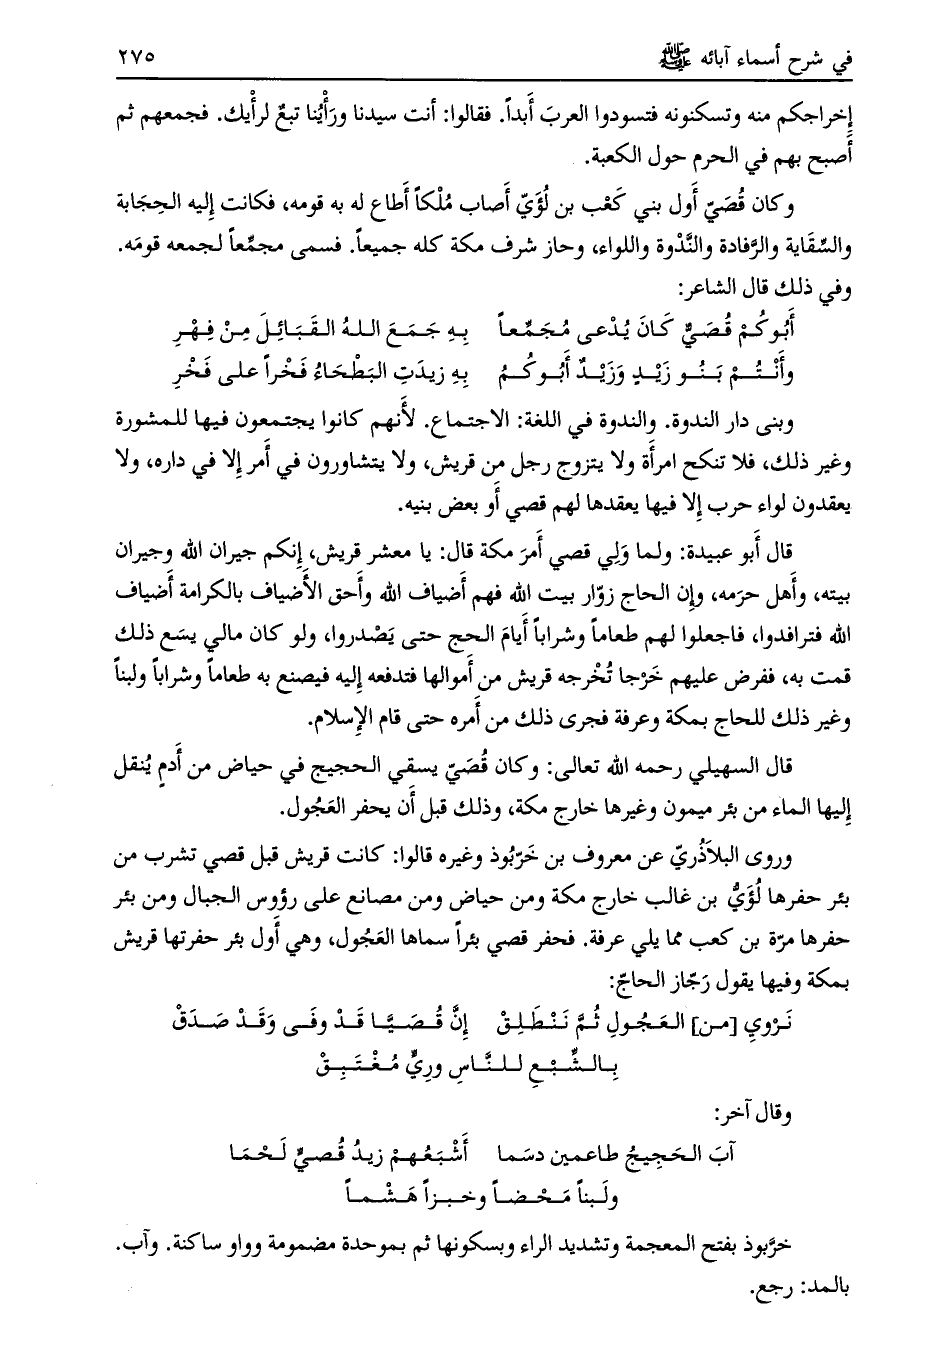 في شرح أسماء آبائه ﷺ ٢٧٥
إخراجكم منه وتسكنونه فتسودوا العربَ أَبداً. فقالوا: أنت سيدنا ورَأْيُنا تبعٌ لرأْيك. فجمعهم ثم
أَصبح بهم في الحرم حول الكعبة.
وكان قُصَيّ أَول بني كَعْب بن لُؤَيّ أَصاب مُلْكاً أَطاع له به قومه، فكانت إليه الحِجَابة
والسِّقَاية والرَّفادة والنَّدْوة واللواء، وحاز شرف مكة كله جميعاً. فسمى مجمِّعاً لجمعه قومَه.
وفي ذلك قال الشاعر:
أَبُوكُمْ قُصَيٌّ كَانَ يُدْعى مُجَمِّعاً بِهِ جَمَعَ اللهُ القَبَائِلَ مِنْ فِهْرِ
وأَنْتُمْ بَنُو زَيْدٍ وَزَيْدٌ أَبُوكُمُ بِهِ زيدَتِ البَطْحَاءُ فَخْراً على فَخْرِ
وبنى دار الندوة. والندوة في اللغة: الاجتماع. لأَنهم كانوا يجتمعون فيها للمشورة
وغير ذلك، فلا تنكح امرأَة ولا يتزوج رجل من قريش، ولا يتشاورون في أَمر إلا في داره، ولا
يعقدون لواء حرب إلا فيها يعقدها لهم قصي أَو بعض بنيه.
قال أَبو عبيدة: ولما وَلِي قصي أَمرَ مكة قال: يا معشر قريش، إنكم جيران الله وجيران
بيته، وأَهل حرَمه، وإن الحاج زوّار بيت الله فهم أَضياف الله وأَحق الأَضياف بالكرامة أَضياف
الله فترافدوا، فاجعلوا لهم طعاماً وشراباً أَيامَ الحج حتى يَصْدروا، ولو كان مالي يسَع ذلك
قمت به، ففرض عليهم خَرْجا تُخْرجه قريش من أَموالها فتدفعه إليه فيصنع به طعاماً وشراباً ولبناً
وغير ذلك للحاج بمكة وعرفة فجرى ذلك من أَمره حتى قام الإسلام.
قال السهيلي رحمه الله تعالى: وكان قُصَيّ يسقي الحجيج في حياض من أَدمٍ يُنقل
إليها الماء من بئر ميمون وغيرها خارج مكة، وذلك قبل أَن يحفر العَجُول.
وروى البلاَذُريّ عن معروف بن خَرّبُوذ وغيره قالوا: كانت قريش قبل قصي تشرب من
بئر حفرها لُؤَيُّ بن غالب خارج مكة ومن حياض ومن مصانع على رؤوس الجبال ومن بئر
حفرها مرّة بن كعب مما يلي عرفة. فحفر قصي بئراً سماها العَجُول، وهي أَول بئر حفرتها قريش
بمكة وفيها يقول رَجّاز الحاجّ:
نَرْوِي [من] العَجُولِ ثُمَّ نَنْطَلِقْ إِنَّ قُصَيًّا قَدْ وفَى وَقَدْ صَدَقْ
بِالشِّبْعِ للنَّاسِ ورِيٍّ مُغْتَبِقْ
وقال آخر:
آبَ الحَجِيجُ طاعمين دسَما أَشْبَعُهمْ زيدُ قُصيٍّ لَحْمَا
ولَبناً مَحْضاً وخبزاً هَشْماً
خرَّبوذ بفتح المعجمة وتشديد الراء وبسكونها ثم بموحدة مضمومة وواو ساكنة. وآب.
بالمد: رجع.